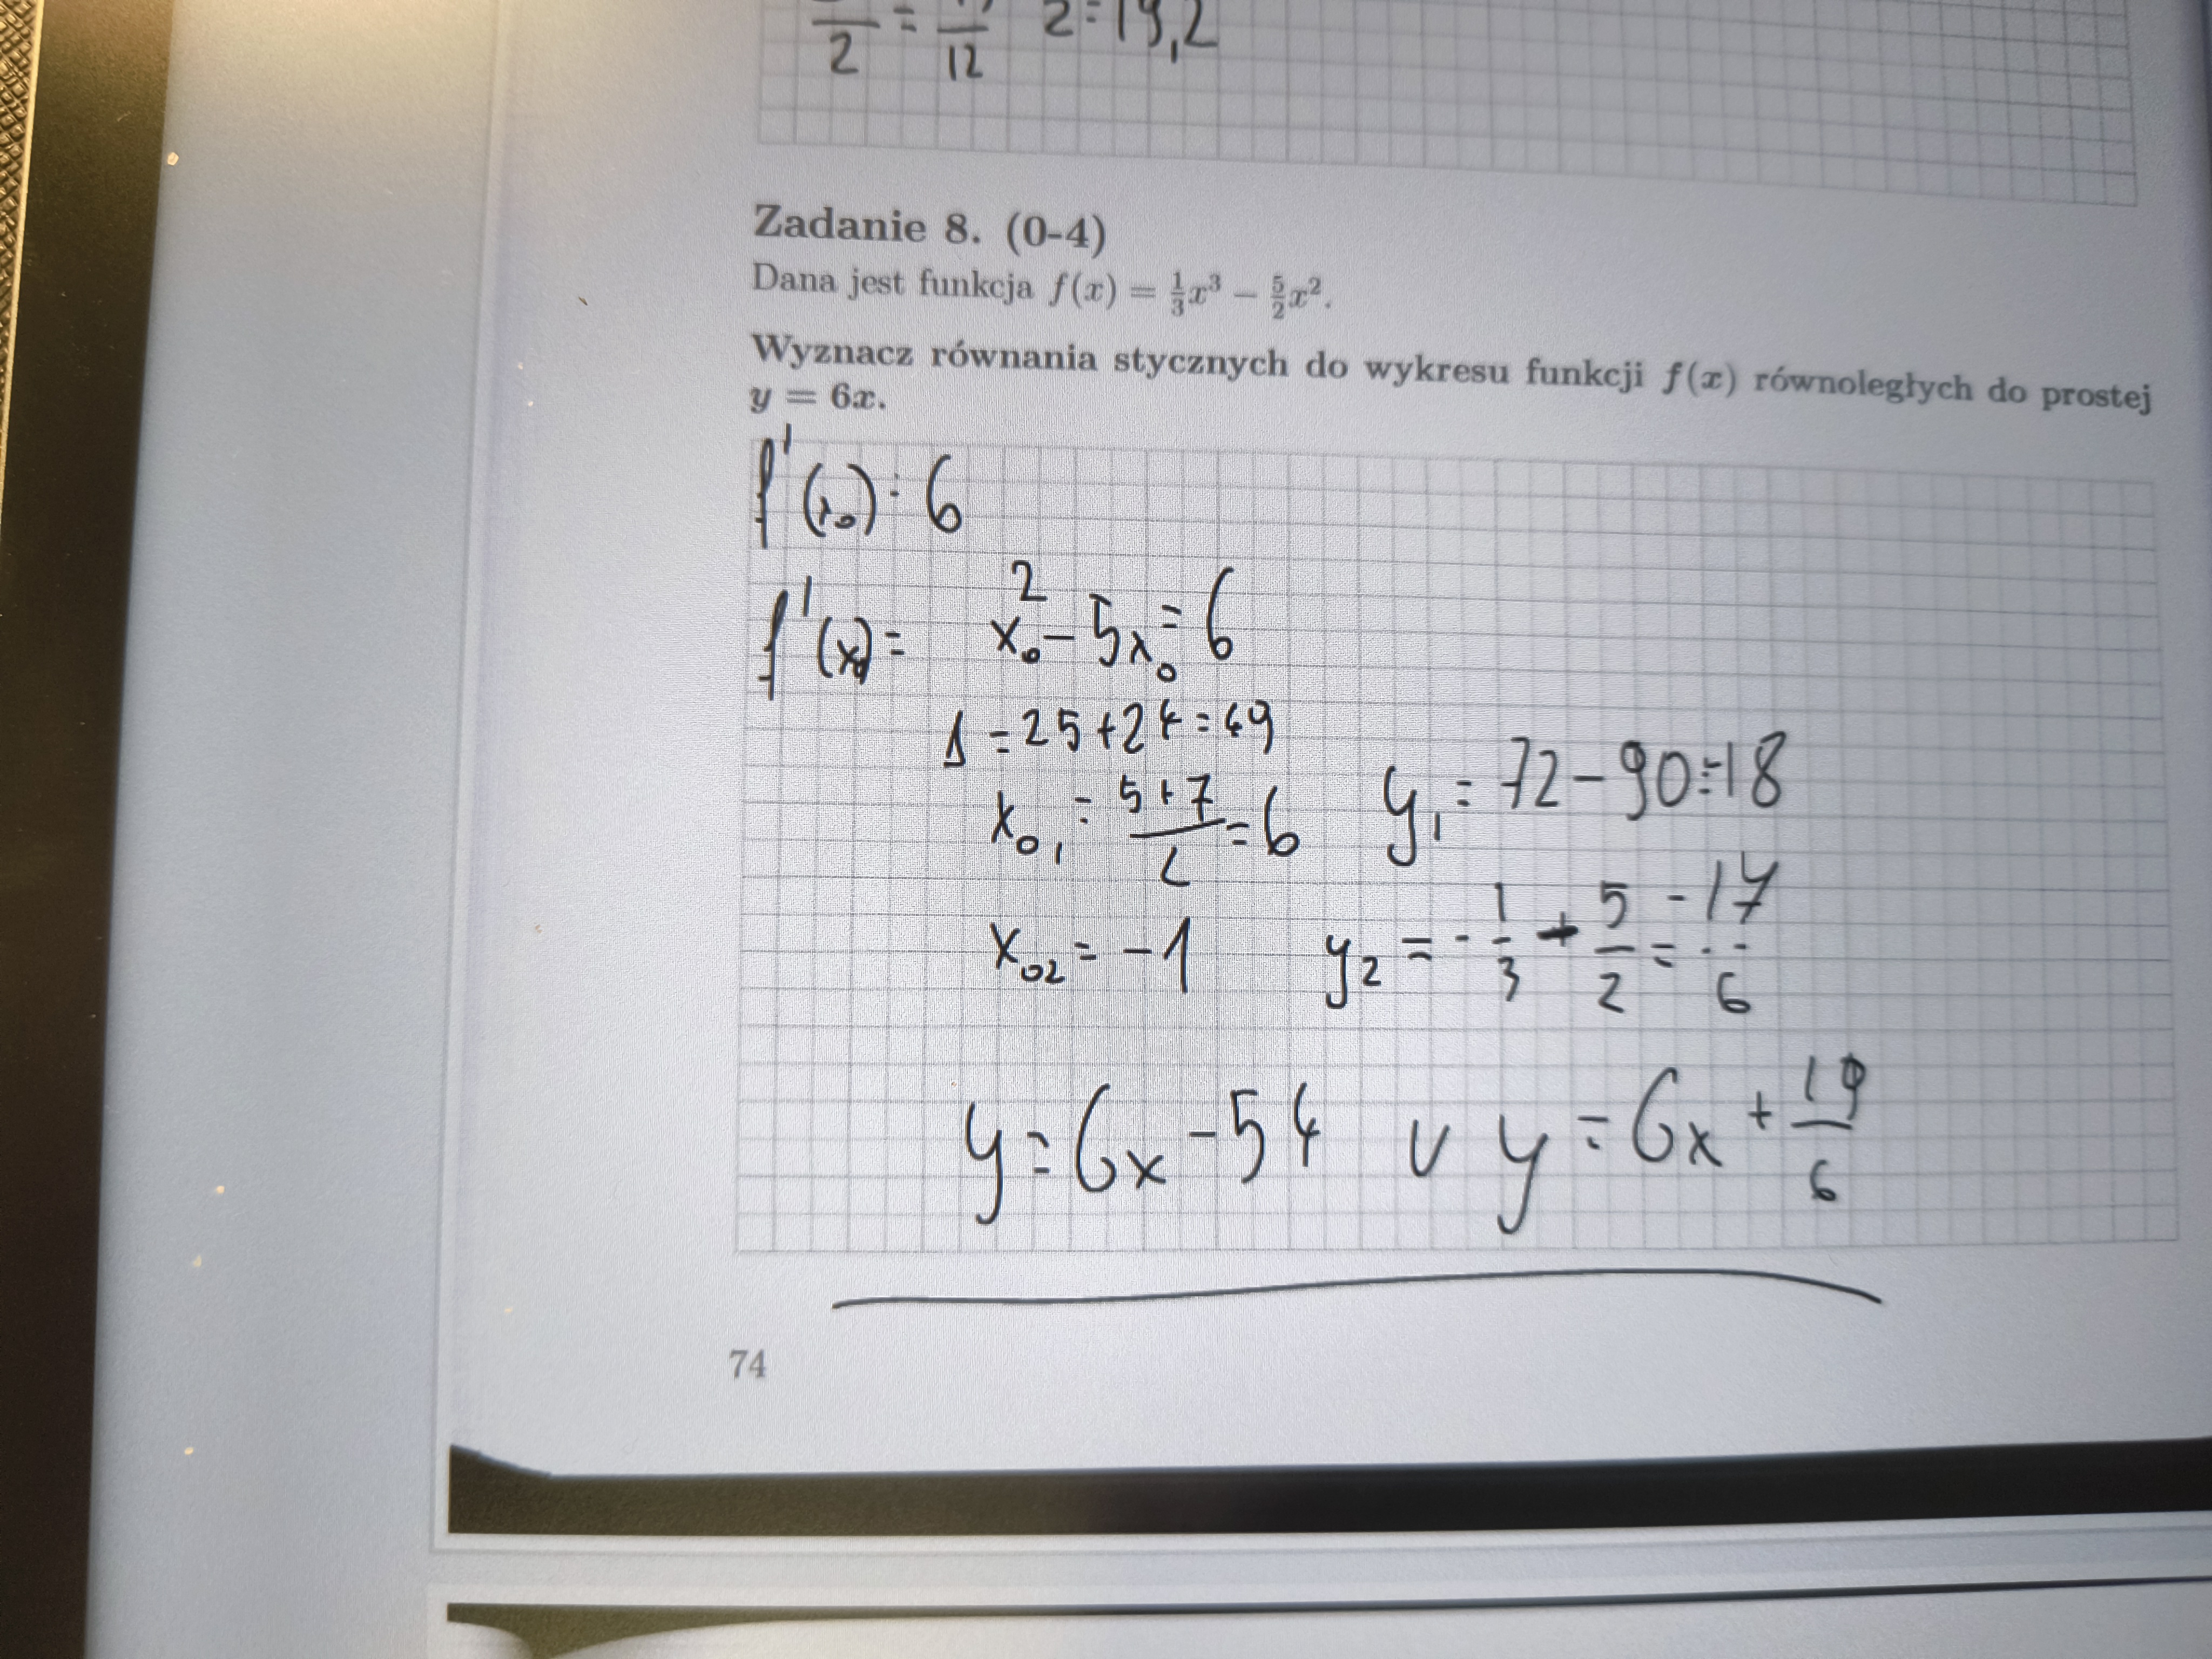 2 = 12 2=19,2
Zadanie 8. (0-4)
Dana jest funkcja f(x) = 1/3x³ − 5/2x².
Wyznacz równania stycznych do wykresu funkcji f(x) równoległych do prostej
y = 6x.
f'(x₀) = 6
f'(x) = x₀² − 5x₀ = 6
Δ = 25 + 24 = 49
x₀₁ = (5+7)/2 = 6 y₁ = 72 − 90 = −18
x₀₂ = −1 y₂ = −1/3 + 5/2 = −17/6
y = 6x − 54 v y = 6x + 19/6
74